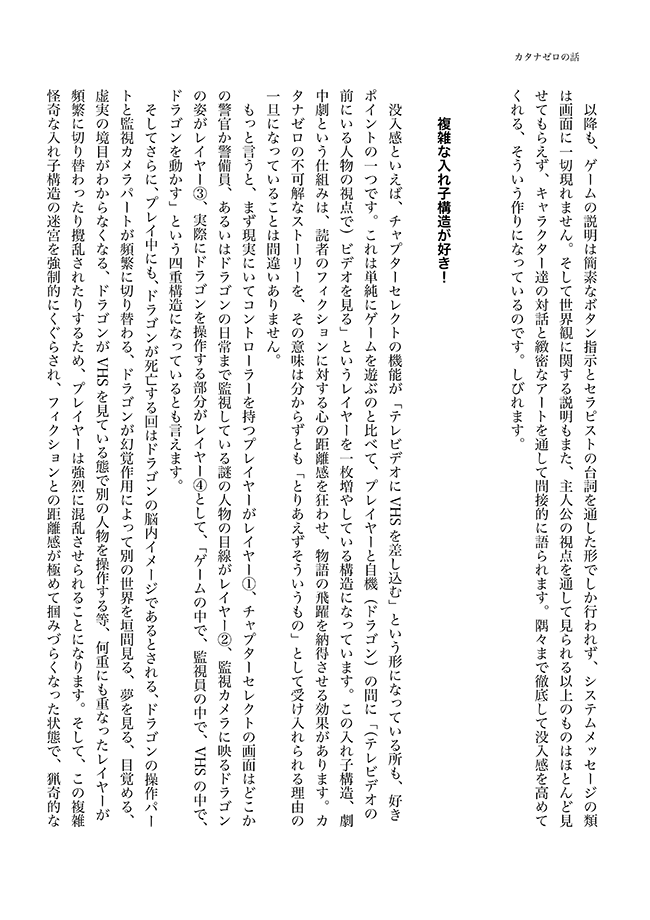 カタナゼロの話
以降も、ゲームの説明は簡素なボタン指示とセラピストの台詞を通した形でしか行われず、システムメッセージの類
は画面に一切現れません。そして世界観に関する説明もまた、主人公の視点を通して見られる以上のものはほとんど見
せてもらえず、キャラクター達の対話と緻密なアートを通して間接的に語られます。隅々まで徹底して没入感を高めて
くれる、そういう作りになっているのです。しびれます。
複雑な入れ子構造が好き！
没入感といえば、チャプターセレクトの機能が「テレビデオにVHSを差し込む」という形になっている所も、好き
ポイントの一つです。これは単純にゲームを遊ぶのと比べて、プレイヤーと自機（ドラゴン）の間に「（テレビデオの
前にいる人物の視点で）ビデオを見る」というレイヤーを一枚増やしている構造になっています。この入れ子構造、劇
中劇という仕組みは、読者のフィクションに対する心の距離感を狂わせ、物語の飛躍を納得させる効果があります。カ
タナゼロの不可解なストーリーを、その意味は分からずとも「とりあえずそういうもの」として受け入れられる理由の
一旦になっていることは間違いありません。
もっと言うと、まず現実にいてコントローラーを持つプレイヤーがレイヤー①、チャプターセレクトの画面はどこか
の警官か警備員、あるいはドラゴンの日常まで監視している謎の人物の目線がレイヤー②、監視カメラに映るドラゴン
の姿がレイヤー③、実際にドラゴンを操作する部分がレイヤー④として、「ゲームの中で、監視員の中で、VHSの中で、
ドラゴンを動かす」という四重構造になっているとも言えます。
そしてさらに、プレイ中にも、ドラゴンが死亡する回はドラゴンの脳内イメージであるとされる、ドラゴンの操作パー
トと監視カメラパートが頻繁に切り替わる、ドラゴンが幻覚作用によって別の世界を垣間見る、夢を見る、目覚める、
虚実の境目がわからなくなる、ドラゴンがVHSを見ている態で別の人物を操作する等、何重にも重なったレイヤーが
頻繁に切り替わったり攪乱されたりするため、プレイヤーは強烈に混乱させられることになります。そして、この複雑
怪奇な入れ子構造の迷宮を強制的にくぐらされ、フィクションとの距離感が極めて掴みづらくなった状態で、猟奇的な